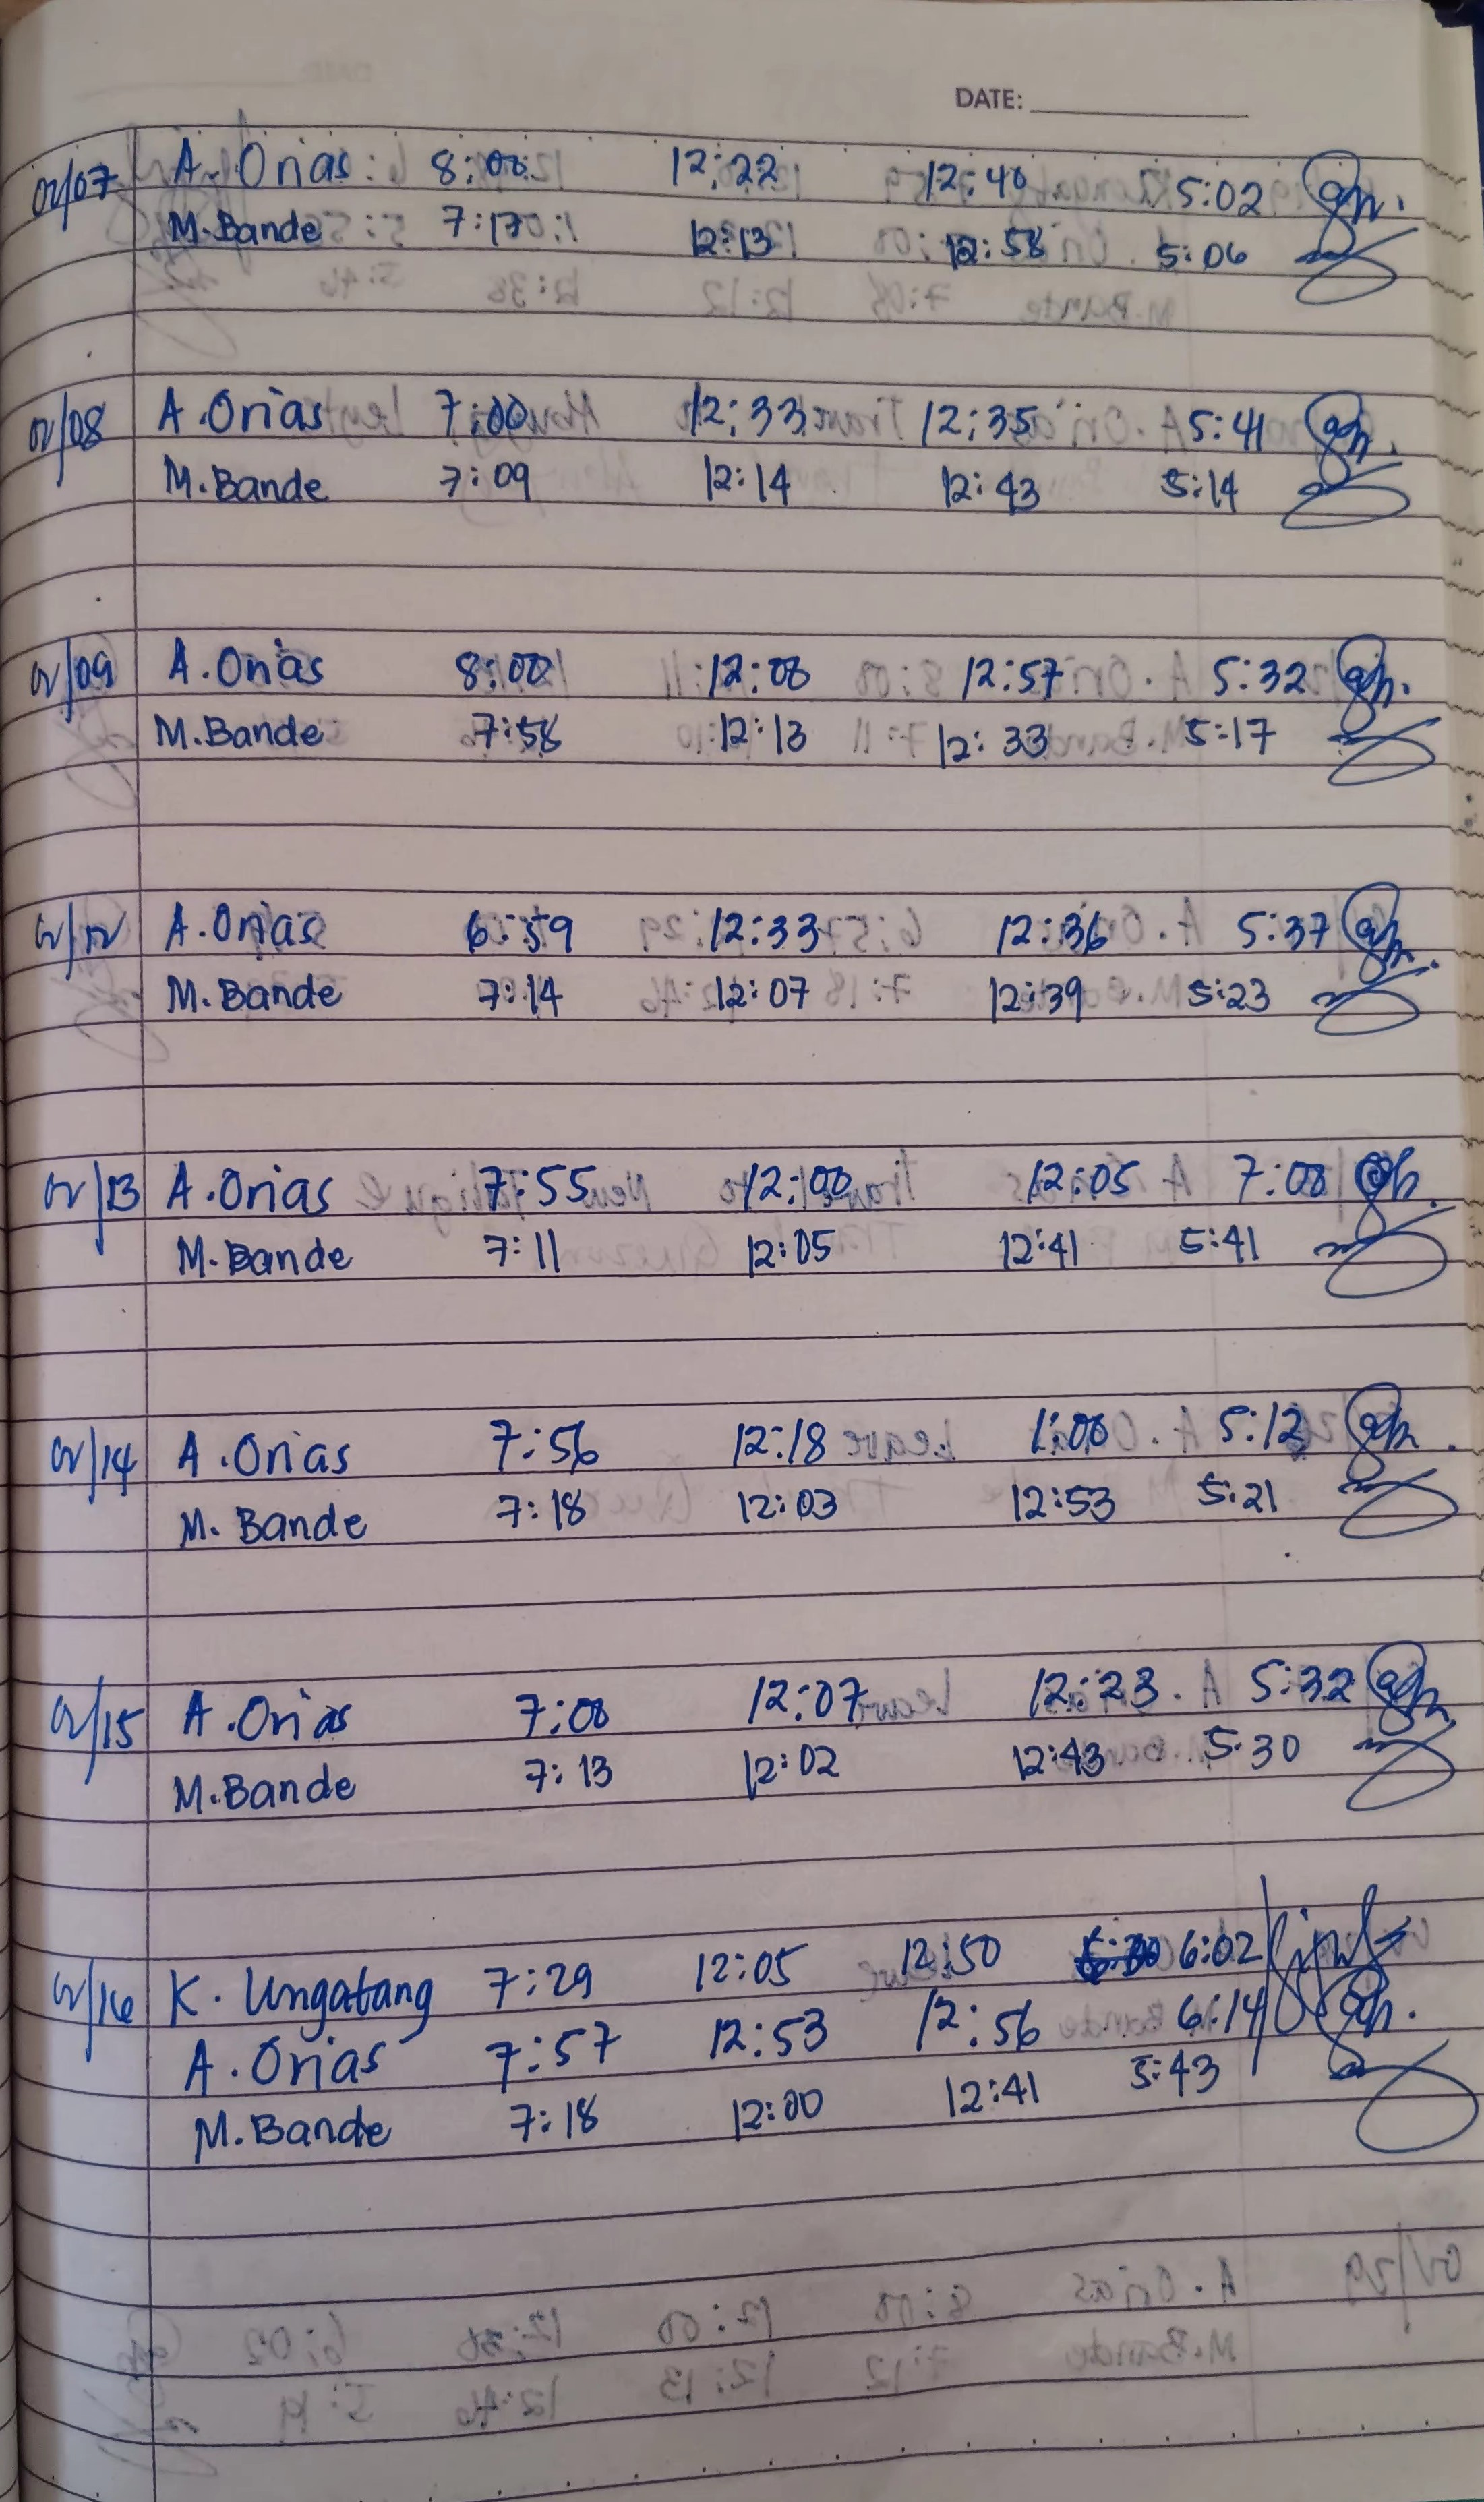 DATE:
02/07 A. Orias 8:00 12:22 12:40 5:02
M. Bande 7:17 12:13 12:58 5:06
02/08 A. Orias 7:00 12:33 12:35 5:41
M. Bande 7:09 12:14 12:43 5:14
02/09 A. Orias 8:00 12:00 12:57 5:32
M. Bande 7:58 12:13 12:33 5:17
02/12 A. Orias 6:59 12:33 12:36 5:37
M. Bande 7:14 12:07 12:39 5:23
02/13 A. Orias 7:55 12:00 12:05 7:00
M. Bande 7:11 12:05 12:41 5:41
02/14 A. Orias 7:56 12:18 1:00 5:12
M. Bande 7:18 12:03 12:53 5:21
02/15 A. Orias 7:00 12:07 12:23 5:32
M. Bande 7:13 12:02 12:43 5:30
02/16 K. Ungatang 7:29 12:05 12:50 6:02
A. Orias 7:57 12:53 12:56 6:14
M. Bande 7:18 12:00 12:41 5:43